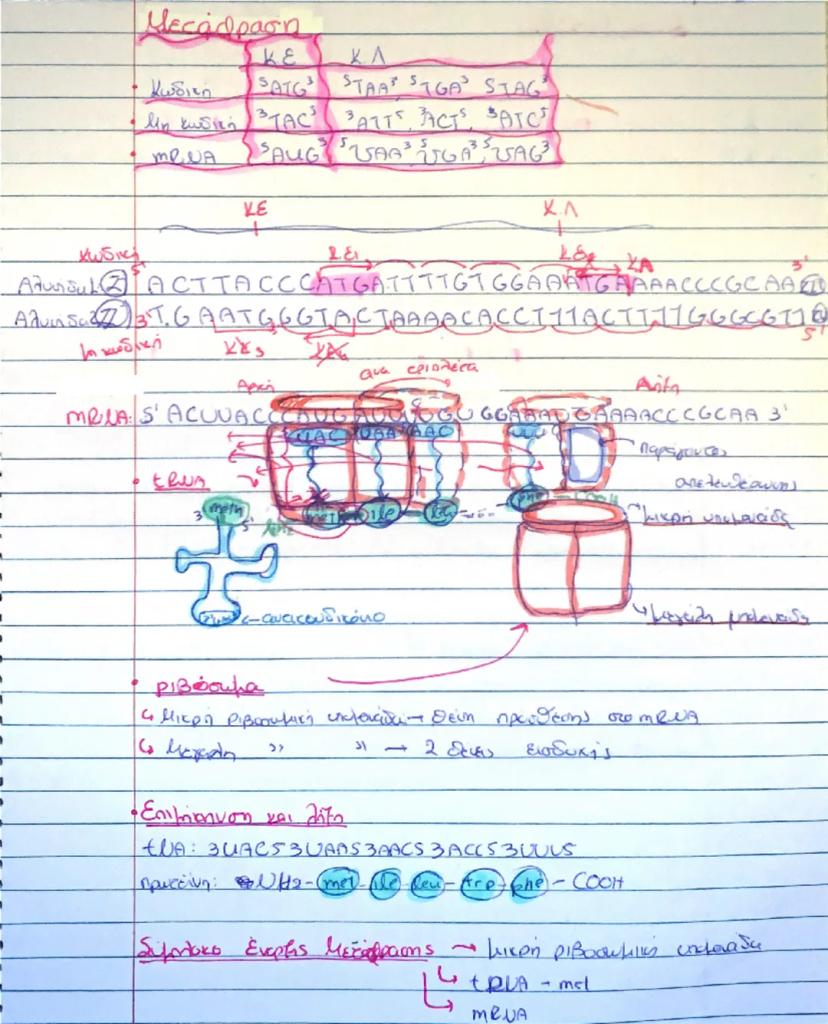 Μετάφραση
ΚΕ ΚΛ
• Κωδική 5ATG3 5TAA3, 5TGA3 5TAG3
• Μη κωδική 3TAC5 3ATT5, 3ACT5, 3ATC5
• mRNA 5AUG3 5UAA3, 5UGA3, 5UAG3
ΚΕ Κ.Λ
Κωδική ΚΕ1 ΚΛ
Αλυσίδα I 5' ACTTACCCATGATTTTGTGGAAATGAAAACCCGCAA 3'
Αλυσίδα II 3' TGAATGGGTACTAAAACACCTTTACTTTTGGGCGTT 5'
Μη κωδική ΚΕ3
Αρχή ανα τριπλέτα Λήξη
mRNA: 5' ACUUACCCAUGAUUUUGUGGAAAUGAAAACCCGCAA 3'
UAC UAA AAC UUU
παράγοντας
απελευθέρωσης
• tRNA
meth
3 5'
met ile leu phe COOH
μικρή υπομονάδα
αντικωδικόνιο
μεγάλη υπομονάδα
• ριβόσωμα
↳ Μικρή ριβοσωμική υπομονάδα → θέση πρόσδεσης στο mRNA
↳ Μεγάλη ,, ,, → 2 θέσεις εισδοχής
• Επιμήκυνση και λήξη
tNA: 3UAC5 3UAA5 3AAC5 3ACC5 3UUU5
πρωτεΐνη: NH2 - met - ile - leu - trp - phe - COOH
Σύμπλοκο Έναρξης Μετάφρασης → μικρή ριβοσωμική υπομονάδα
↳ tRNA - met
↳ mRNA